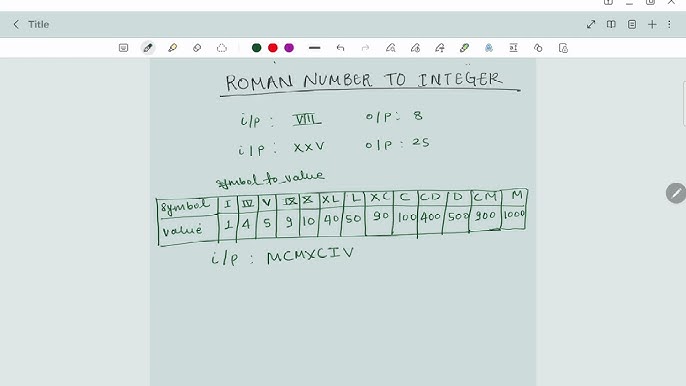 Title
ROMAN NUMBER TO INTEGER
i/p : VIII o/p : 8
i/p : XXV o/p : 25
symbol_to_value
symbol I IV V IX X XL L XC C CD D CM M
value 1 4 5 9 10 40 50 90 100 400 500 900 1000
i/p : MCMXCIV